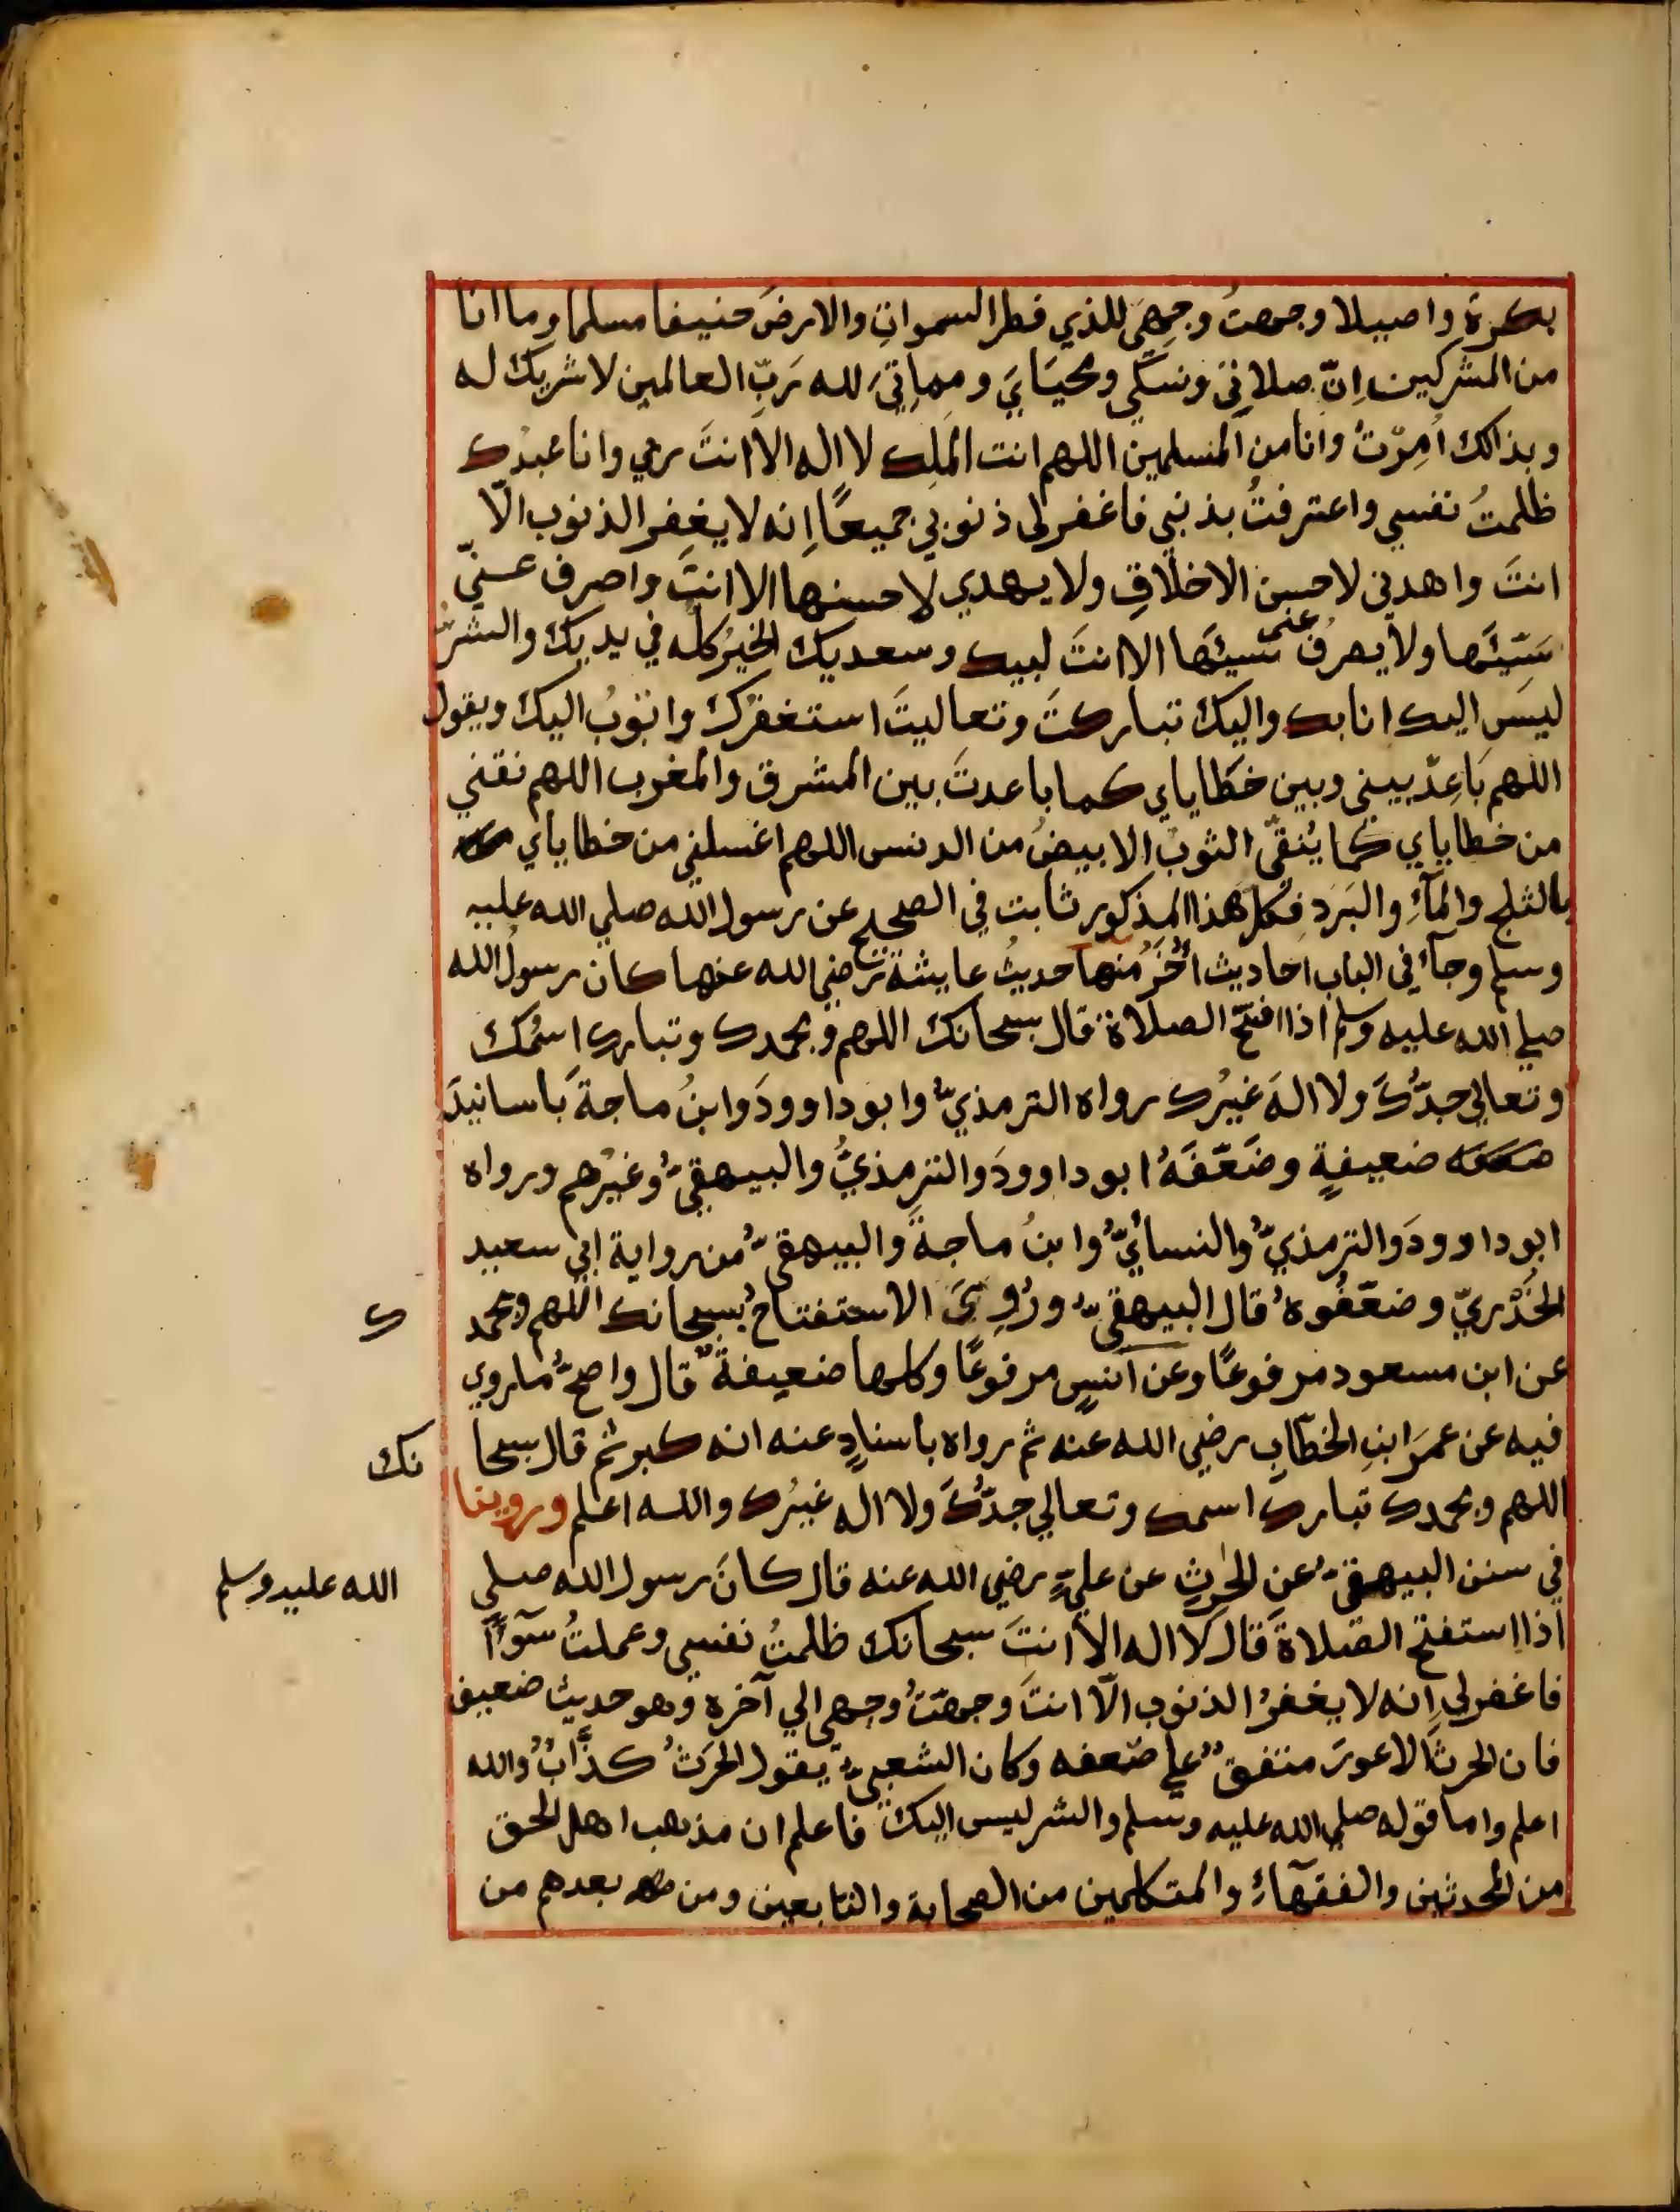 بكرة واصيلا وجهتُ وجهيَ للذي فطر السمواتِ والارضَ حنيفا مسلما وما انا
من المشركين اِنّ صلاتِي ونسكي ومحيَايَ ومماتِيَ لله رَبِّ العالمين لا شريك له
وبذالك اُمِرْتُ وانا من المسلمين اللهم انت الملِك لا اله الا انتَ ربي وانا عبدُك
ظلمتُ نفسي واعترفتُ بذنبي فاغفر لى ذنوبي جميعًا اِنه لا يغفِر الذنوب الّا
انتَ واهدنى لاحسن الاخلاقِ ولا يهدي لاحسنها الا انتَ واصرف عنيّ
سَيّئَها ولا يصرفُ عنى سَيئَها الا انتَ لبيك وسعديك الخيرُ كلُّه في يديك والشر
ليسَ اليك انا بك واليك تباركتَ وتعاليتَ استغفرك واتوبُ اليك ويقول
اللهم بَاعِدْ بيني وبين خطاياي كما باعدتَ بين المشرق والمغرب اللهم نقني
من خطاياي كما يُنقىّ الثوبُ الابيضُ من الدنس اللهم اغسلني من خطاياي
بالثلج والمآءِ والبَرَدِ فكل هذا المذكور ثابت في الصحيح عن رسول الله صلي الله عليه
وسلم وجآء في الباب احاديث اُخَرُ منها حديثُ عايشة رضي الله عنها كان رسولُ الله
صلي الله عليه وسلم اذا افتتح الصلاة قال سبحانك اللهم وبحمدك وتبارك اسمُك
وتعالي جدُّكَ ولا الهَ غيرُك رواه الترمذيُّ وابو داوودَ وابنُ ماجةَ باسانيدَ
ضعيفةٍ وضَعّفَهُ ابو داوودَ والترمذيُّ والبيهقيُّ وغيرُهم ورواه
ابو داوودَ والترمذيُّ والنسائيُّ وابنُ ماجةَ والبيهقيُّ من رواية ابي سعيد
الخُدْريّ وضعّفُوهُ قال البيهقيُّ ورُوِيَ الاستفتاحُ بسبحانك اللهم وبحمد ك
عن ابن مسعود مرفوعًا وعن انسٍ مرفوعًا وكلها ضعيفةٌ قال واصحُّ ما روي
فيه عن عمرَ ابنِ الخطّابِ رضي الله عنه ثم رواه باسنادٍ عنه انه كبر ثم قال سبحا نك
اللهم وبحمدك تبارك اسمك وتعالي جدُّكَ ولا اله غيرُك والله اعلم وروينا
في سنن البيهقيّ عن الحٰرثِ عن عليٍّ رضي الله عنه قال كانَ رسول الله صلي الله عليه وسلم
اذا استفتح الصّلاةَ قال لا اله الا انتَ سبحانك ظلمتُ نفسي وعملتُ سوٓءًا
فاغفر لي اِنه لا يغفرُ الذنوب الّا انتَ وجهّتُ وجهي الي آخره وهو حديث ضعيف
فان الحرثَ الاعورَ متفقٌ علي ضعفه وكان الشعبيُّ يقول الحرثُ كذَّابٌ والله
اعلم واما قوله صلي الله عليه وسلم والشر ليس اليك فاعلم ان مذهب اهل الحق
من المحدثين والفقهآءِ والمتكلمين من الصحابة والتابعين ومن بعدهم من